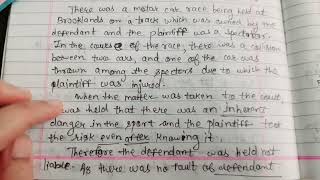 There was a motor car race being held at
Brooklands on a track which was owned by the
defendant and the plaintiff was a spectators.
In the course of the race, there was a collision
between two cars, and one of the car was
thrown among the spectors due to which the
plaintiff was injured.
When the matter was taken to the court
was held that there was an inherent
danger in the sport and the plaintiff took
the risk even after knowing it.
Therefore the defendant was held not
liable. As there was no fault of defendant